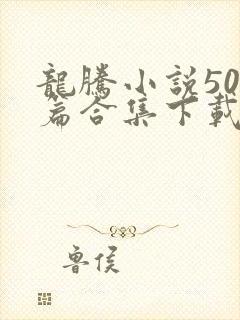 龍騰小説50
篇合集下載
魯侯